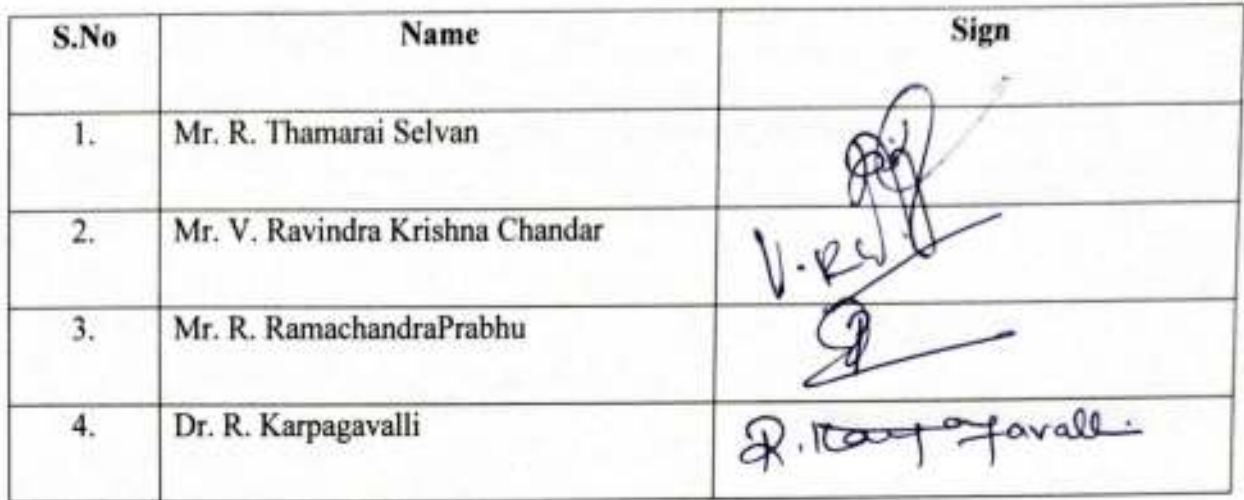 S.No Name Sign
1. Mr. R. Thamarai Selvan
2. Mr. V. Ravindra Krishna Chandar V.R
3. Mr. R. RamachandraPrabhu
4. Dr. R. Karpagavalli R. Karpagavalli